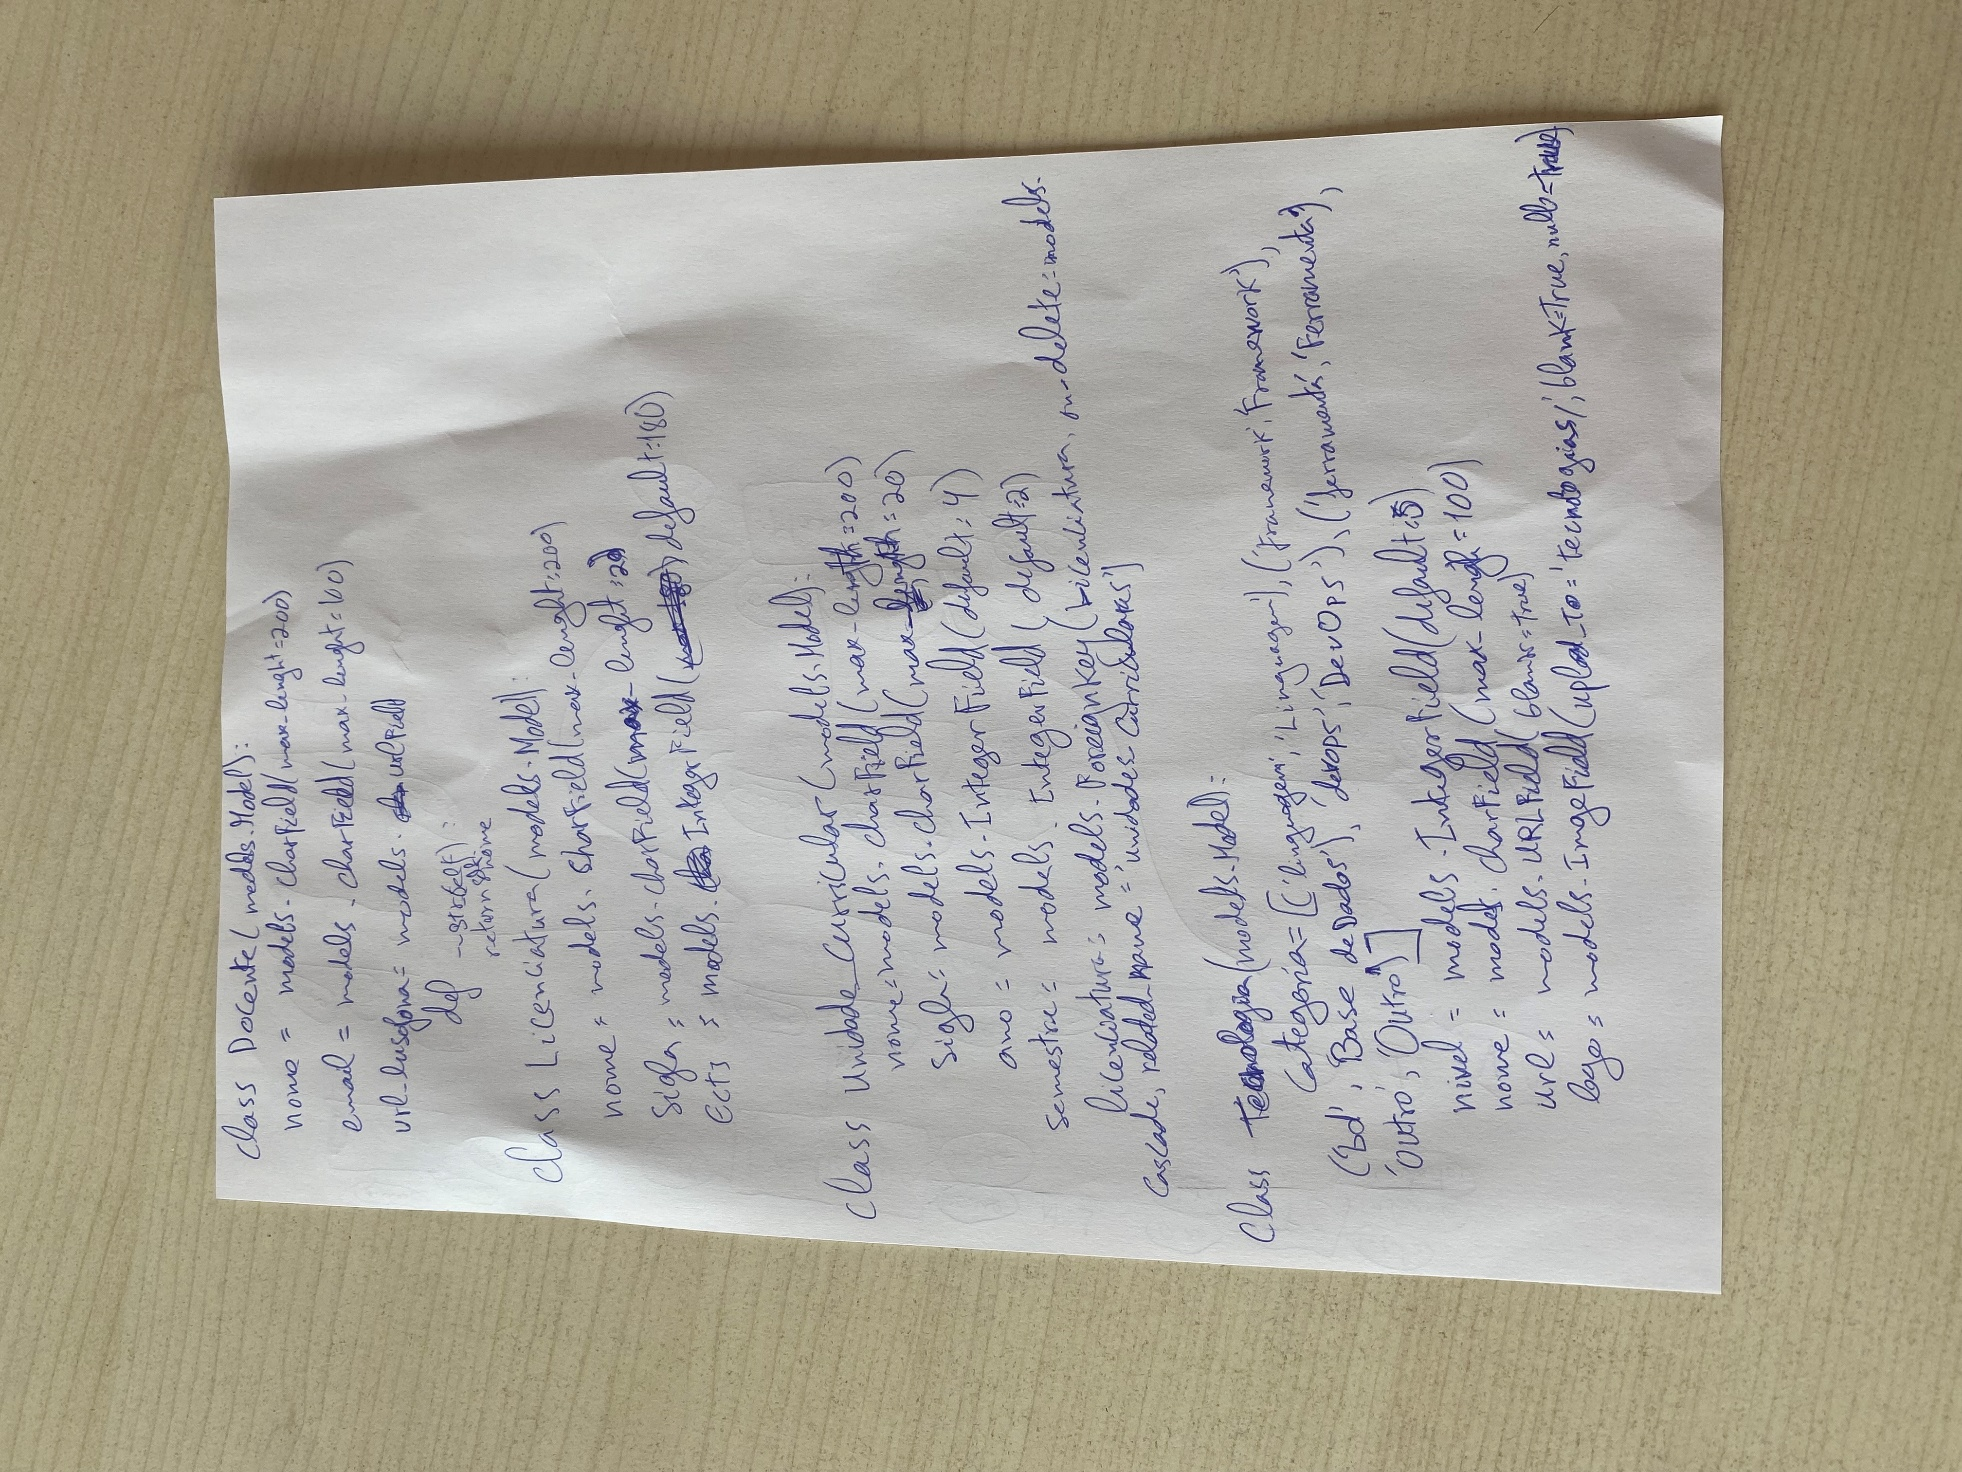 class Docente(models.Model):
nome = models.charField(max-lenght=200)
email = models.charField(max-lenght=60)
url-lusofona= models. urlField
def --str(self):
return self.nome
class Licenciatura(models.Model):
nome = models.charField(max-lenght=200)
Sigla = models.charField(max-lenght=20)
Ects = models. IntegerField( default=180)
class Unidade_Curricular(models.Model):
nome=models.charField(max-length=200)
Sigla= models.charField(max-length=20)
ano = models.IntegerField(default=4)
semestre= models.IntegerField( default=2)
licenciatura= models.ForeignKey(Licenciatura, on-delete=models.
Cascade, related-name='unidades_curriculares')
class Tecnologia(models.Model):
Categoria=[('linguagem','Linguagem'),('framework','Framework'),
('bd','Base de Dados'),'devops','DevOps'),('ferramenta','Ferramenta'),
'Outro','Outro')]
nivel = models.IntegerField(default=5)
nome = model.charField(max-length=100)
url = models.URLField(blank=True)
logo = models.ImageField(upload_to='tecnologias/',blank=True,null=True)